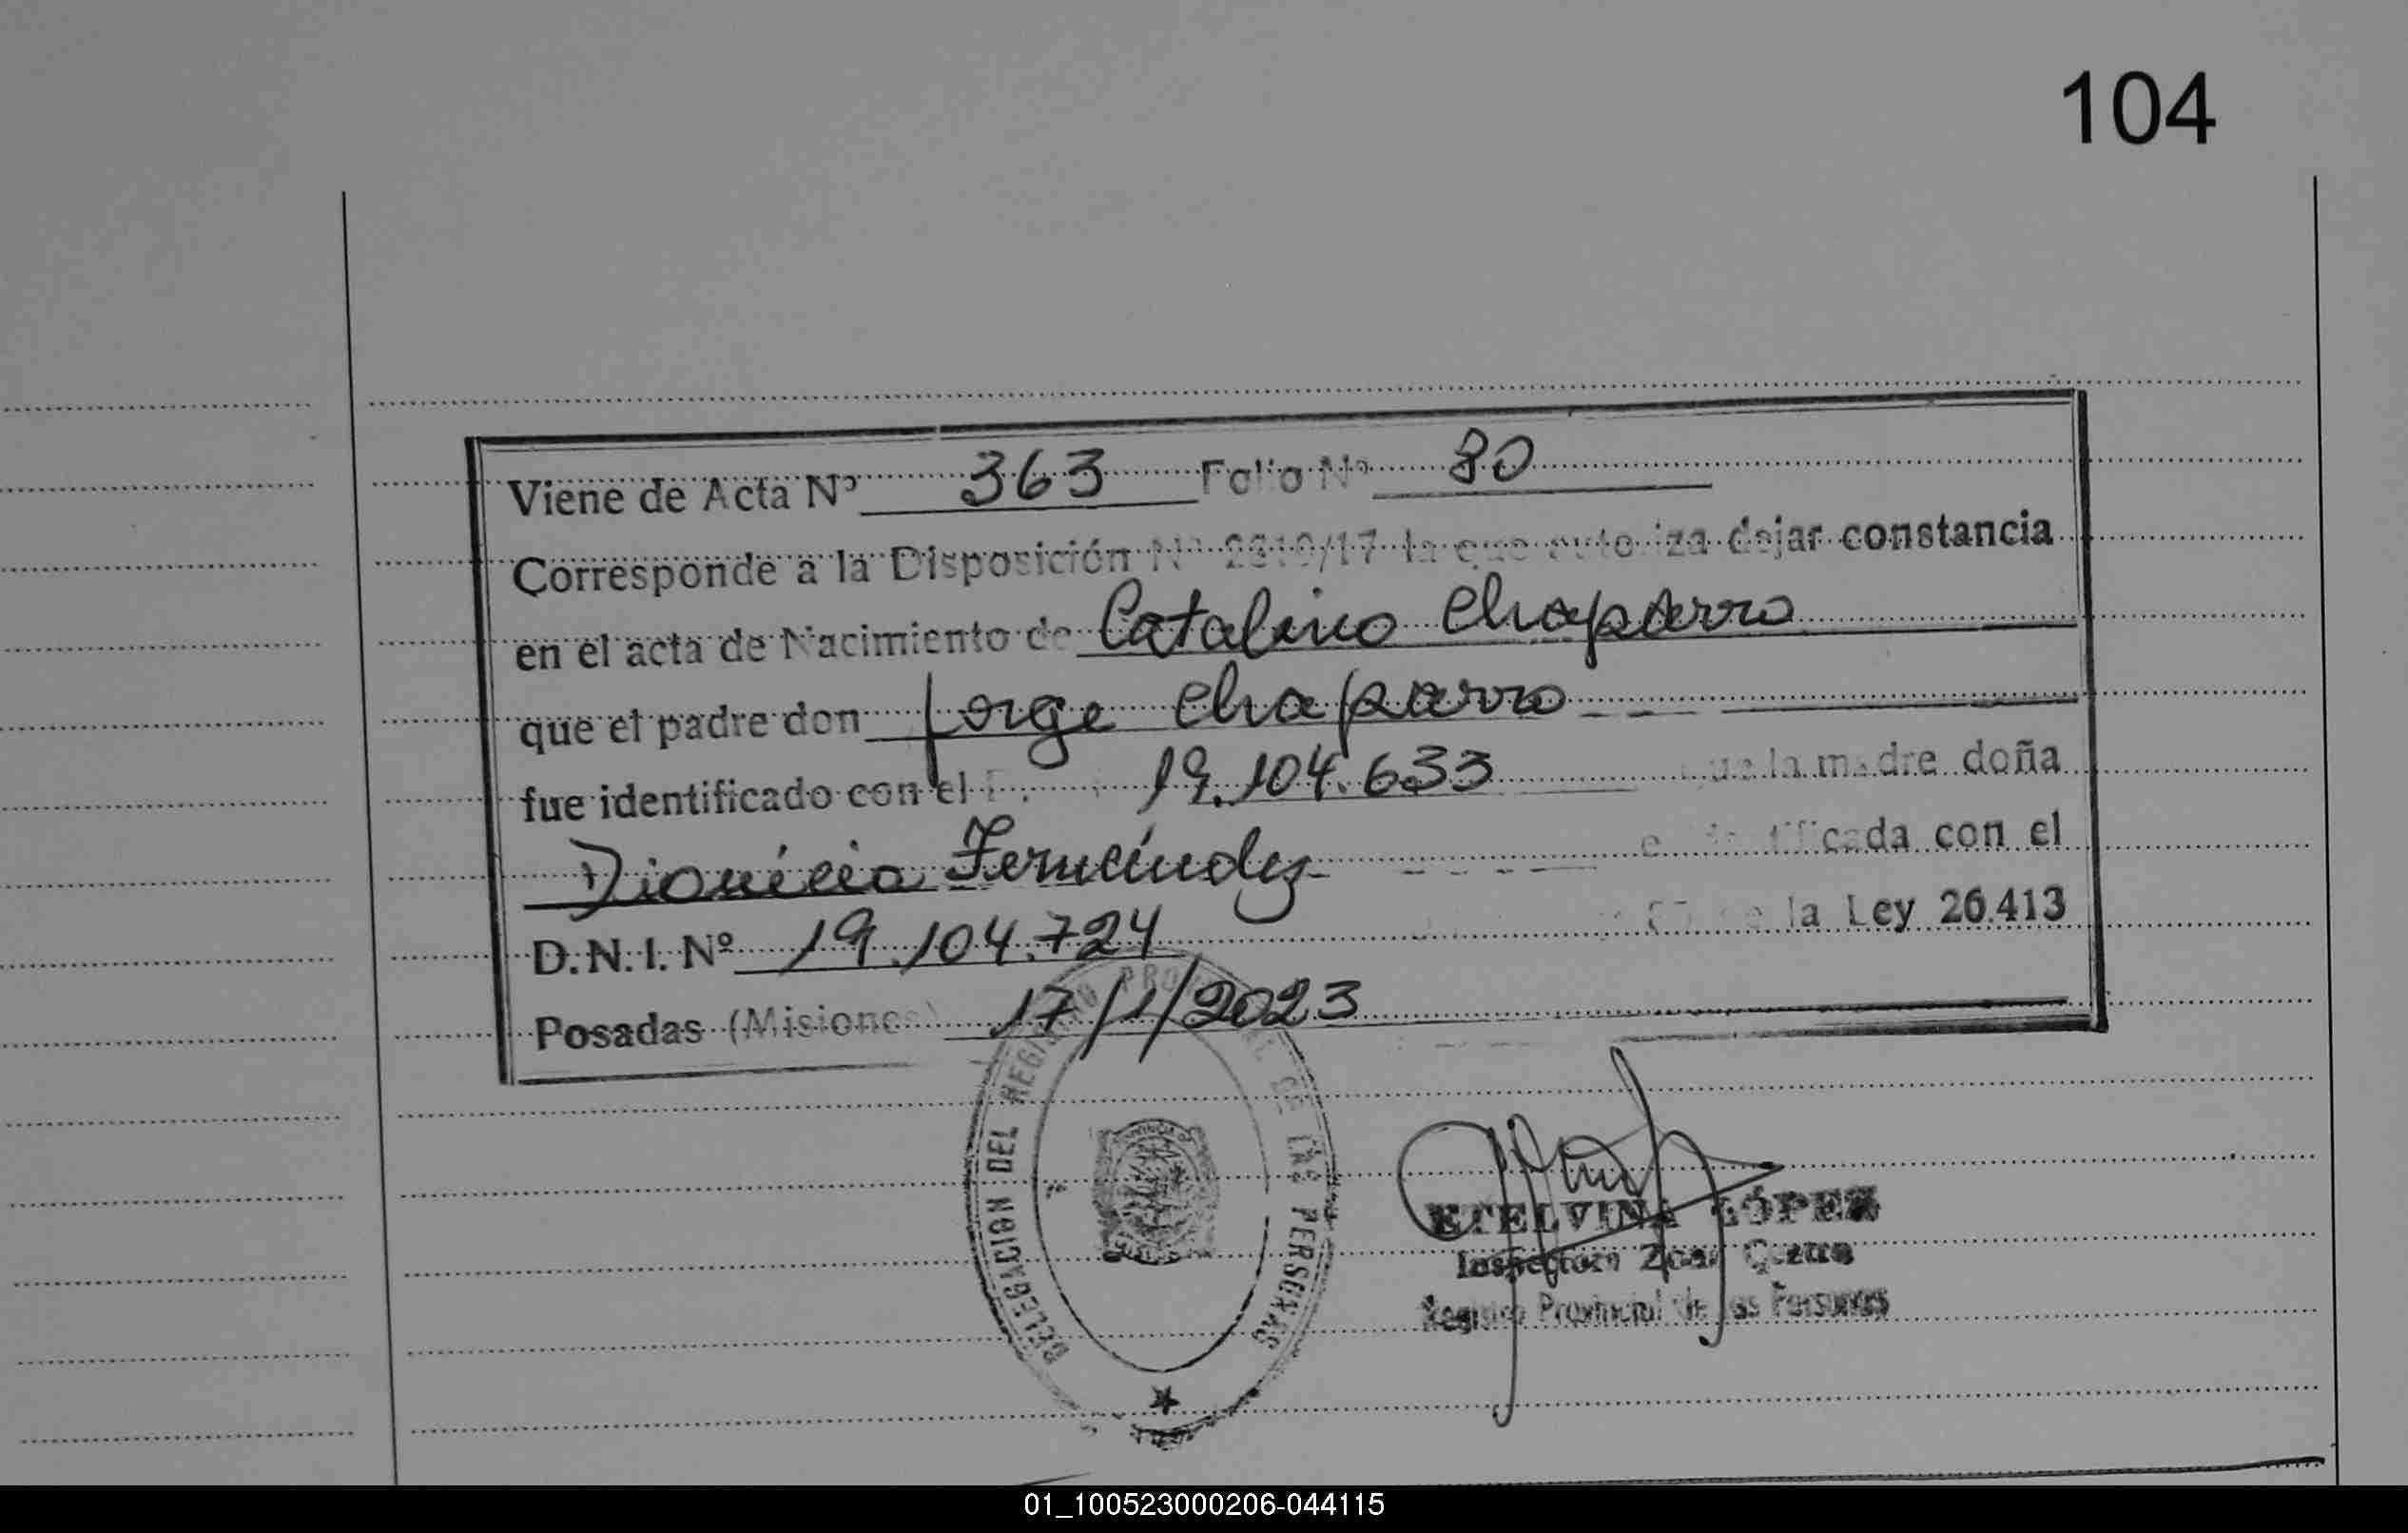 104
Viene de Acta Nº 363 Folio Nº 80
Corresponde a la Disposición Nº 2310/17 la que autoriza dejar constancia
en el acta de Nacimiento de Catalino Chaparro
que el padre don Jorge Chaparro
fue identificado con el 19.104.633 que la madre doña
Dionicia Fernández identificada con el
D.N.I. Nº 19.104.724 la Ley 26.413
Posadas (Misiones) 17/1/2023
DELEGACION DEL REGISTRO PROVINCIAL DE LAS PERSONAS
ETELVINA LÓPEZ
Inspectora Zona
Registro Provincial de las Personas
01_100523000206-044115